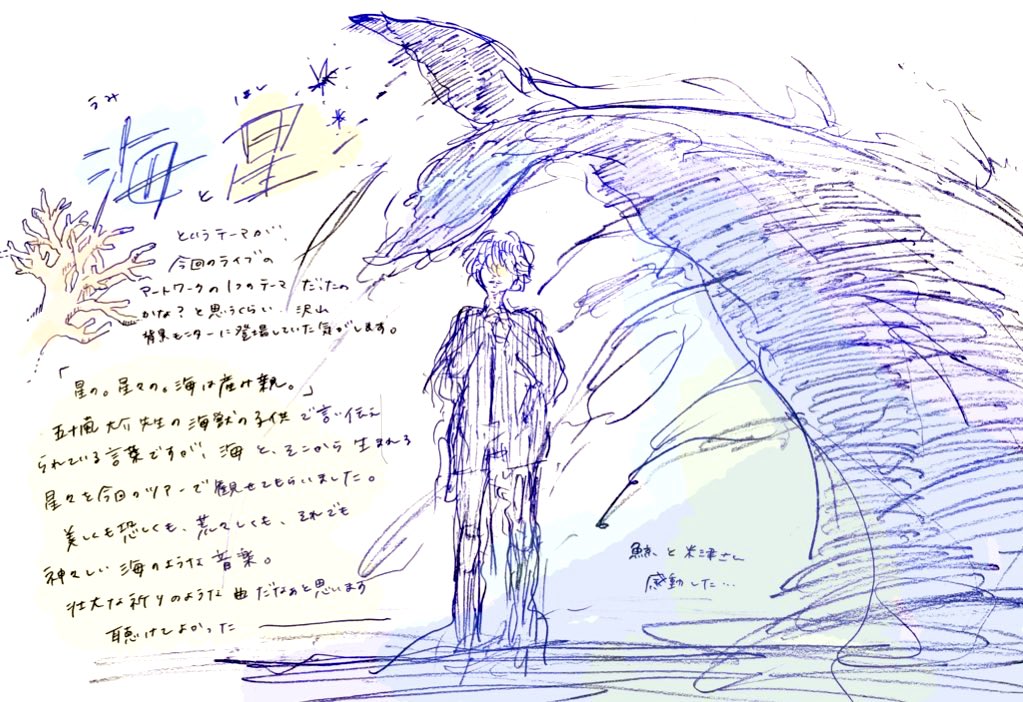 うみ ほし
海と星
というテーマが、
今回のライブの
アートワークの1つのテーマだったの
かな?と思うくらい 沢山
背景モニターに登場していた気がします。
「星の。星々の。海は産み親。」
五十嵐大介先生の海獣の子供で言い伝え
られている言葉ですが、海と、そこから生まれる
星々を今回のツアーで観せてもらいました。
美しくも恐しくも、荒々しくも、それでも
神々しい海のような音楽。
壮大な祈りのような曲だなぁと思います
聴けてよかった
鯨と米津さん
感動した…